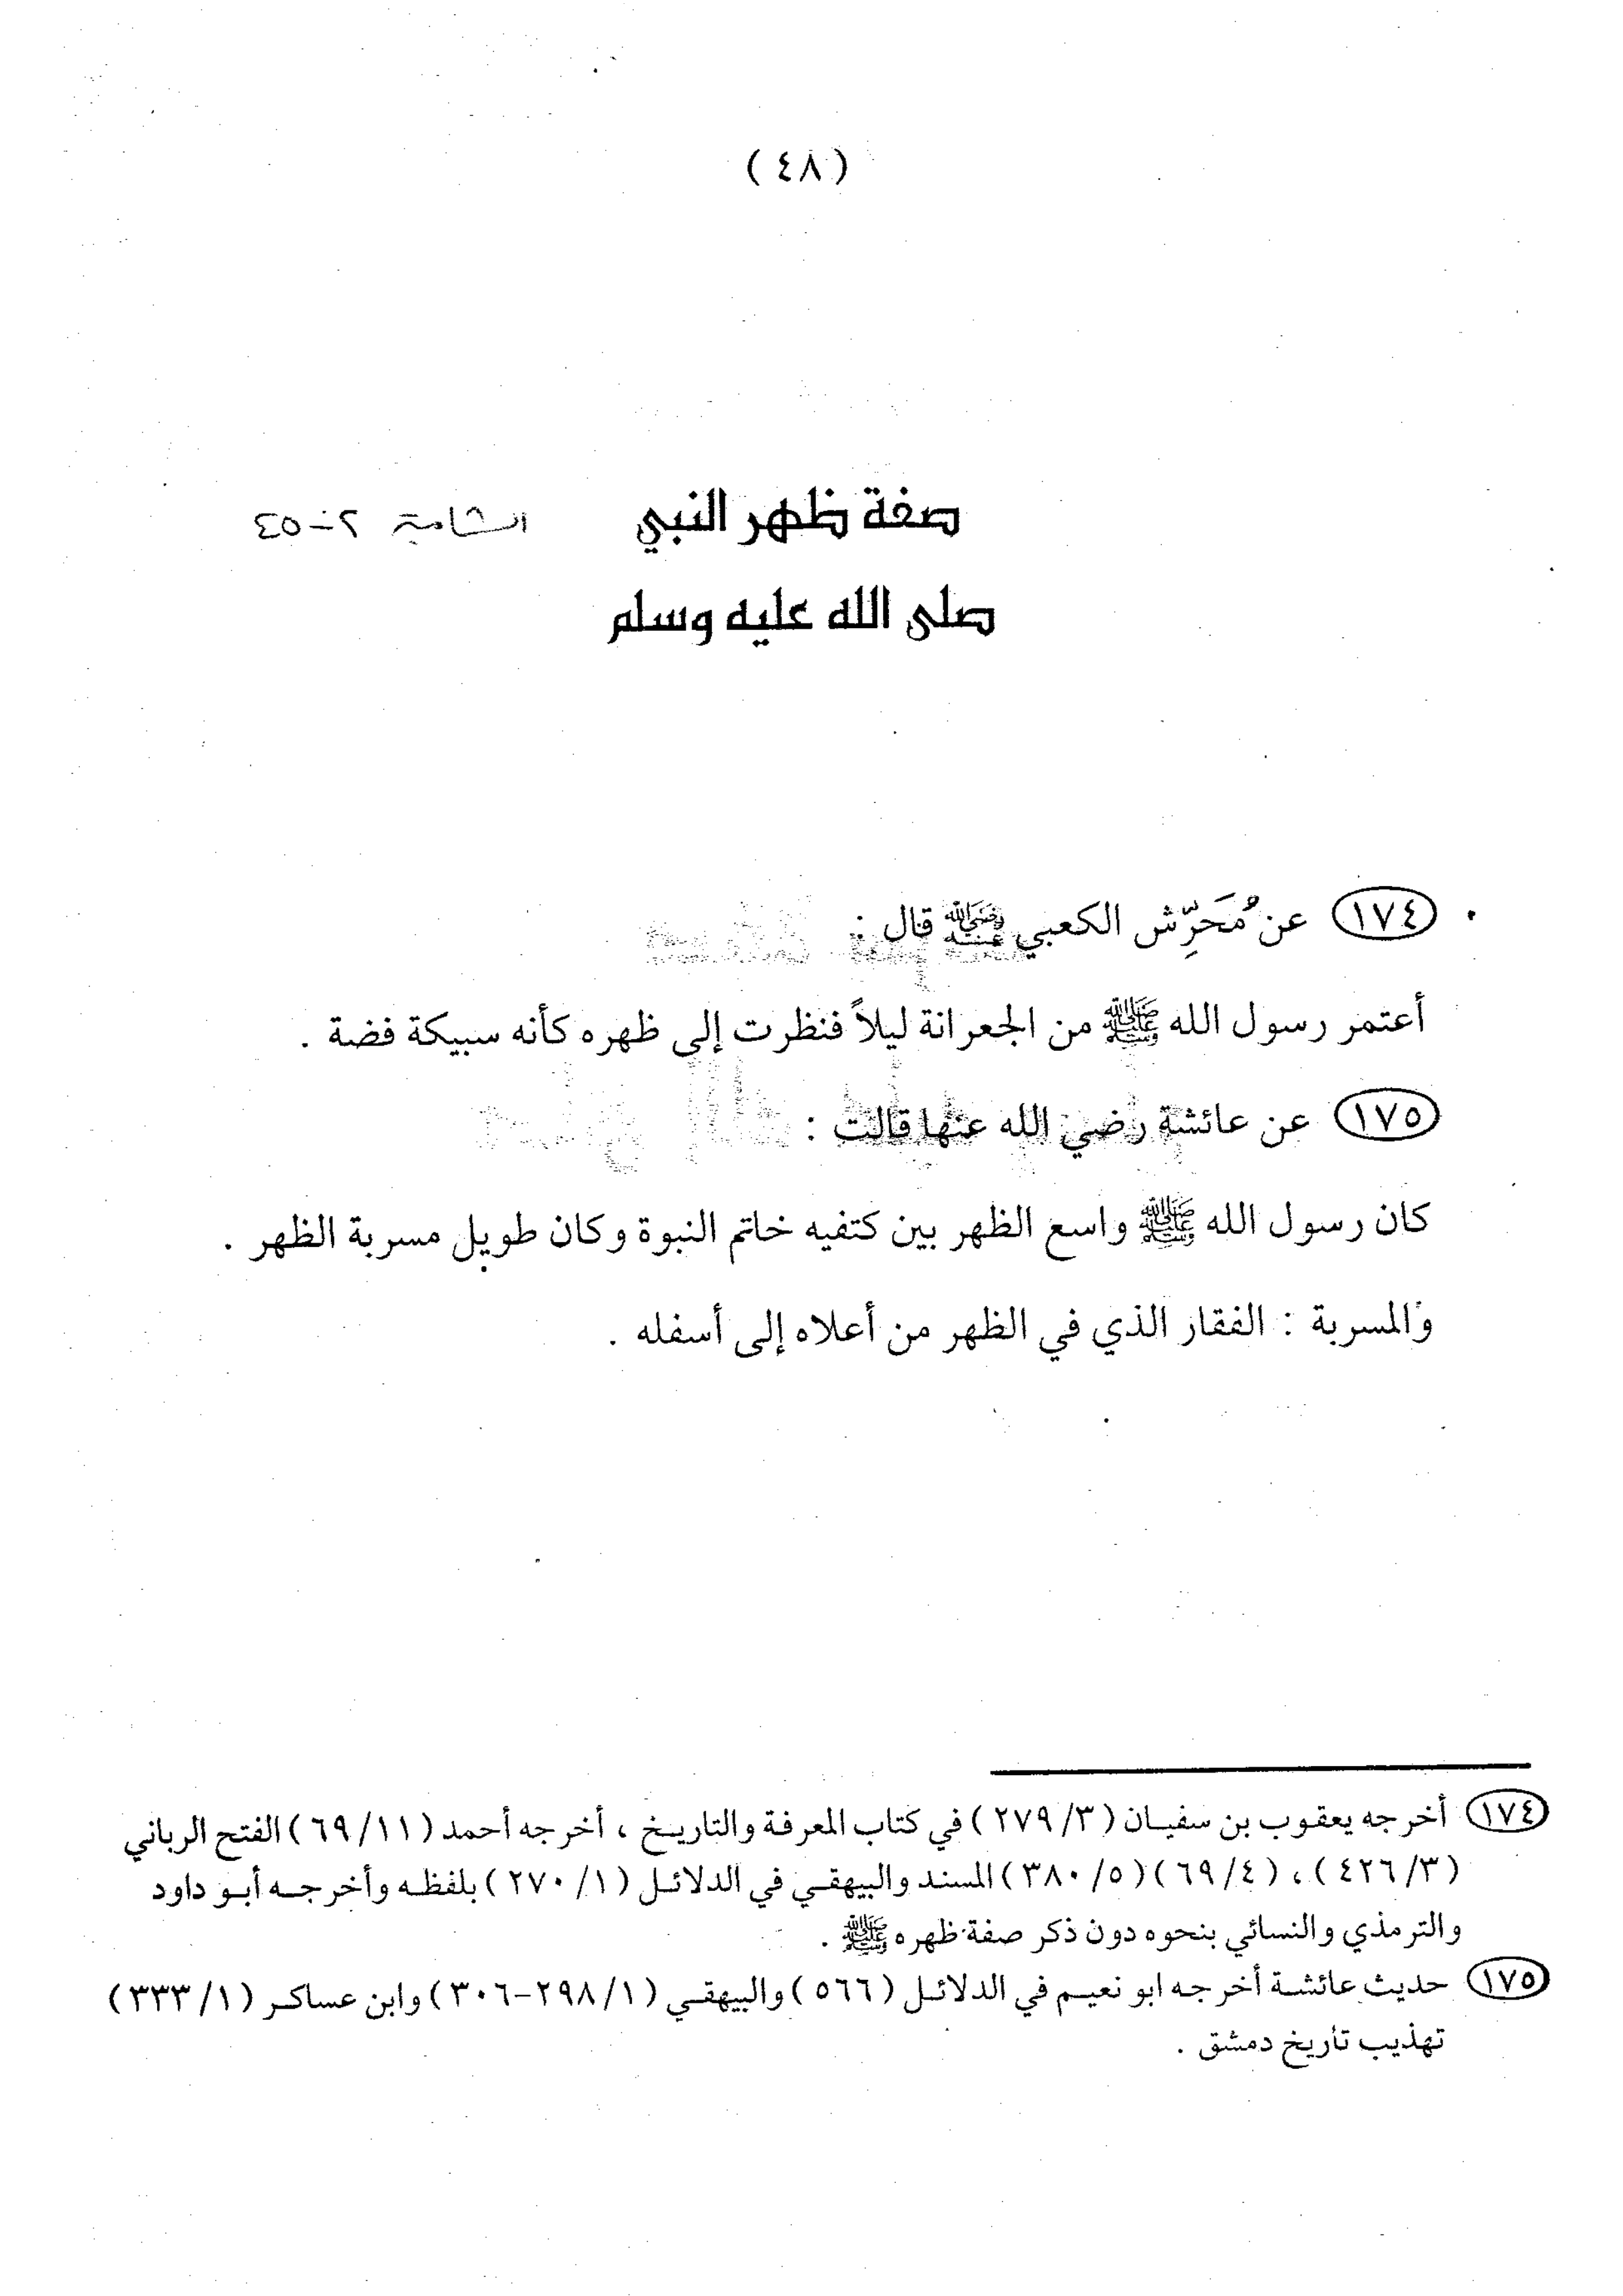 (٤٨)
صفة ظهر النبي
صلى الله عليه وسلم
١٧٤ عن مُحَرِّش الكعبي رضي الله عنه قال :
أعتمر رسول الله ﷺ من الجعرانة ليلاً فنظرت إلى ظهره كأنه سبيكة فضة .
١٧٥ عن عائشة رضي الله عنها قالت :
كان رسول الله ﷺ واسع الظهر بين كتفيه خاتم النبوة وكان طويل مسربة الظهر .
والمسربة : الفقار الذي في الظهر من أعلاه إلى أسفله .
١٧٤ أخرجه يعقوب بن سفيان (٢٧٩/٣) في كتاب المعرفة والتاريخ ، أخرجه أحمد (٦٩/١١) الفتح الرباني
(٤٢٦/٣) ، (٦٩/٤) (٣٨٠/٥) المسند والبيهقي في الدلائل (٢٧٠/١) بلفظه وأخرجه أبو داود
والترمذي والنسائي بنحوه دون ذكر صفة ظهره ﷺ .
١٧٥ حديث عائشة أخرجه ابو نعيم في الدلائل (٥٦٦) والبيهقي (٢٩٨/١-٣٠٦) وابن عساكر (٣٣٣/١)
تهذيب تأريخ دمشق .